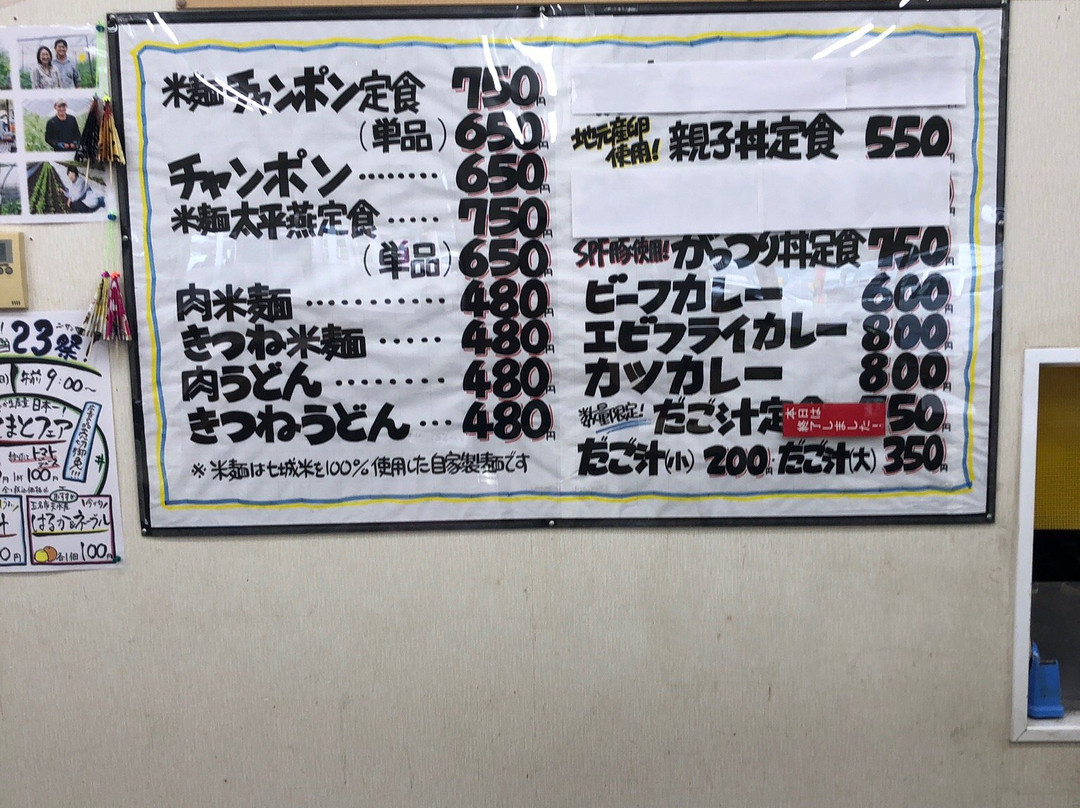 米麺チャンポン定食 750円
(単品) 650円
チャンポン ········ 650円
米麺太平燕定食 ······ 750円
(単品) 650円
肉米麺 ············ 480円
きつね米麺 ······ 480円
肉うどん ·········· 480円
きつねうどん ··· 480円
※米麺は七城米を100%使用した自家製麺です
地元産卵使用! 親子丼定食 550円
SPF豚使用! がっつり丼定食 750円
ビーフカレー 600円
エビフライカレー 800円
カツカレー 800円
数量限定! だご汁定食 50円
本日は
終了しました!
だご汁(小) 200円 だご汁(大) 350円
23祭
前9:00~
生産日本一!
まとフェア
トマト
100円
おすすめ
はるか&ネーブル
各1個 100円